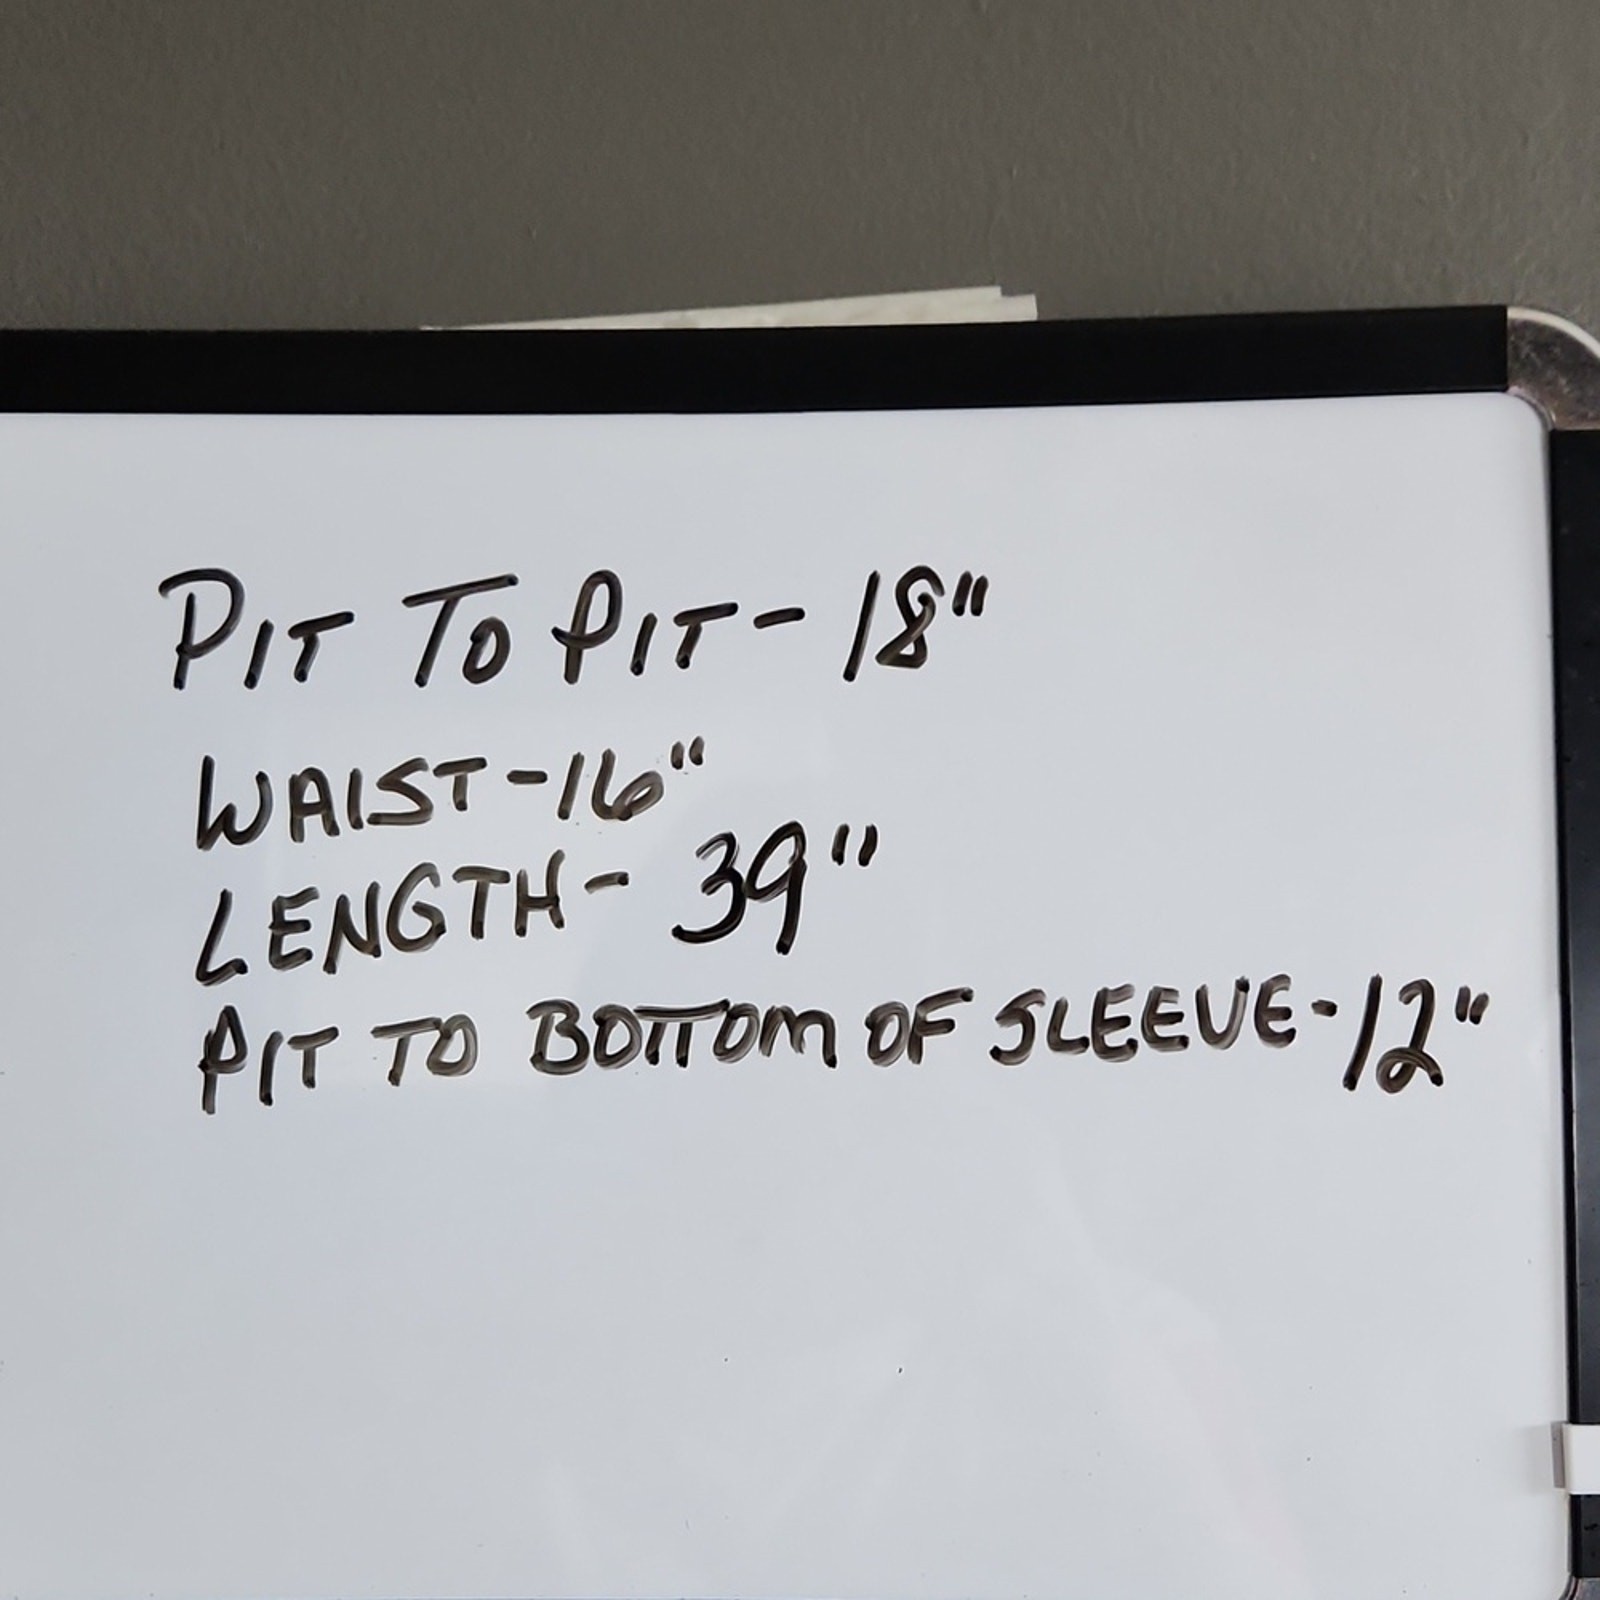 PIT TO PIT- 18"
WAIST-16"
LENGTH- 39"
PIT TO BOTTOM OF SLEEVE-12"